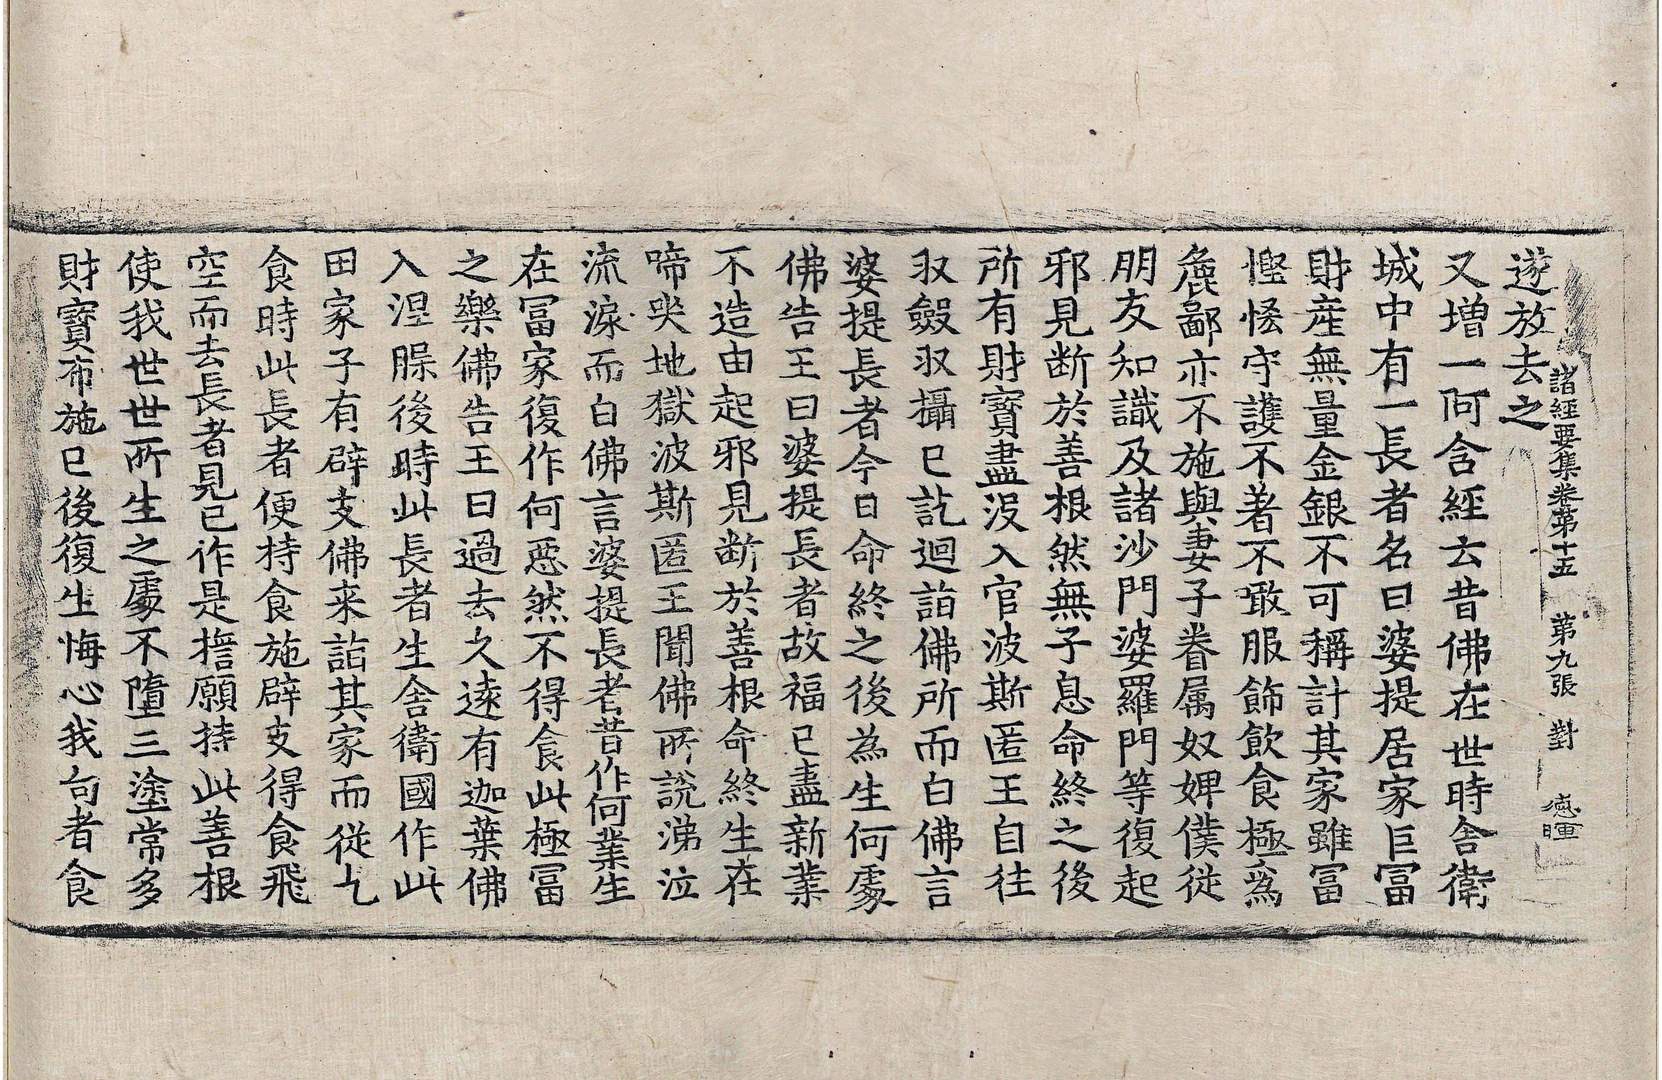 諸經要集卷第十五 第九張 對 德暉
遂放去之
又增一阿含經云昔佛在世時舍衛
城中有一長者名曰婆提居家巨冨
財産無量金銀不可稱計其家雖冨
慳悋守護不著不噉服飾飲食極爲
麁鄙亦不施與妻子眷属奴婢僕従
朋友知識及諸沙門婆羅門等復起
邪見断於善根然無子息命終之後
所有財寳盡沒入官波斯匿王自往
収斂収攝已訖迴詣佛所而白佛言
婆提長者今日命終之後為生何處
佛告王曰婆提長者故福已盡新業
不造由起邪見断於善根命終生在
啼哭地獄波斯匿王聞佛所說涕泣
流淚而白佛言婆提長者昔作何業生
在冨家復作何惡然不得食此極冨
之樂佛告王曰過去久遠有迦葉佛
入涅槃後時此長者生舍衛國作此
田家子有辟支佛来詣其家而従乞
食時此長者便持食施辟支得食飛
空而去長者見已作是擔願持此善根
使我世世所生之處不墮三塗常多
財寳布施已後復生悔心我向者食